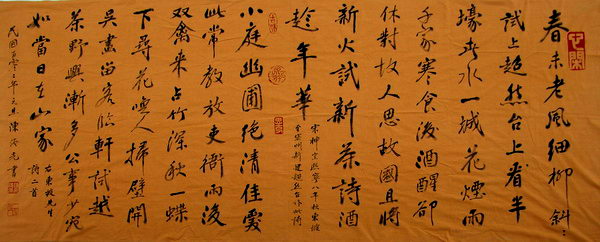 春未老風細柳斜〻
試上超然台上看半
壕春水一城花煙雨
千家寒食後酒醒卻
休對故人思故國且將
新火試新茶詩酒
趁年華
宋神宗熙寧八年秋東坡
密州新建超然台作此詩
小庭幽圃绝清佳愛
此常教放吏衙雨後
双禽來占竹深秋一蝶
下尋花喚人掃壁開
吳畫留客臨軒試越
茶野興漸多公事少宛
如當日在山家
右東坡先生
詩二首
民國年元旦陳書